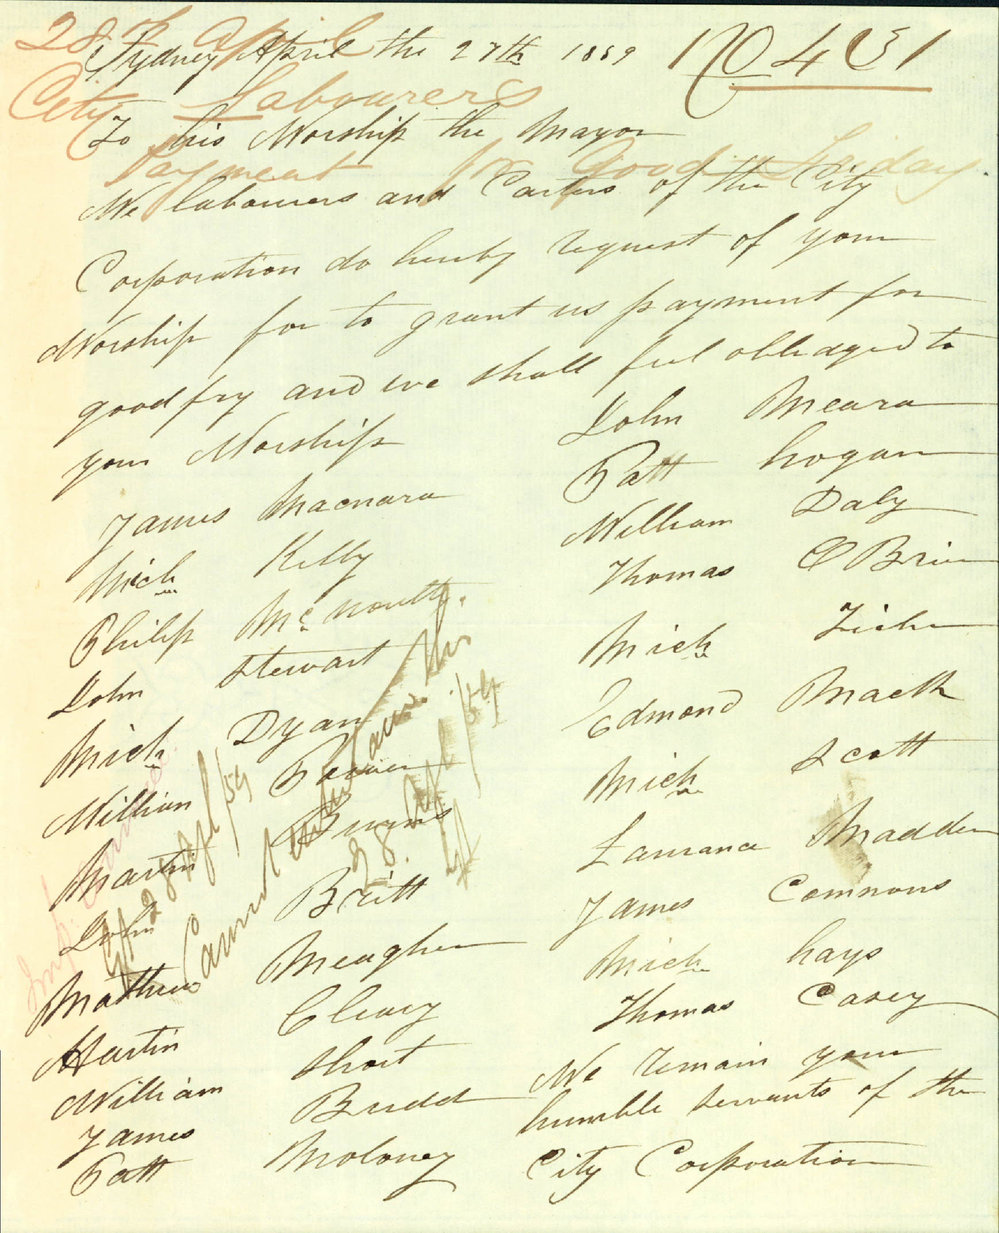 28th April
Sydney April the 27th 1859
No 431
City Labourers
To his Worship the Mayor
Payment for Good Friday.
We labourers and Carters of the City
Corporation do hereby request of your
Worship for to grant us payment for
good fry and we shall feel obledged to
your Worship
James Macnara
Mich Kelly
Philip McNoulty
John Stewart
Mich Dyan
William
Martin Burns
John Britt
Mathew Meagher
Martin Cleary
William Short
James Budd
Patt Moloney
John Meara
Patt Hogan
William Daly
Thomas O Brien
Mich
Edmond Mack
Mich Scott
Laurance Madden
James Commons
Mich Hays
Thomas Casey
We remain your
humble servants of the
City Corporation
28 Apl/59
Cannot entertain this
28 Apl/59